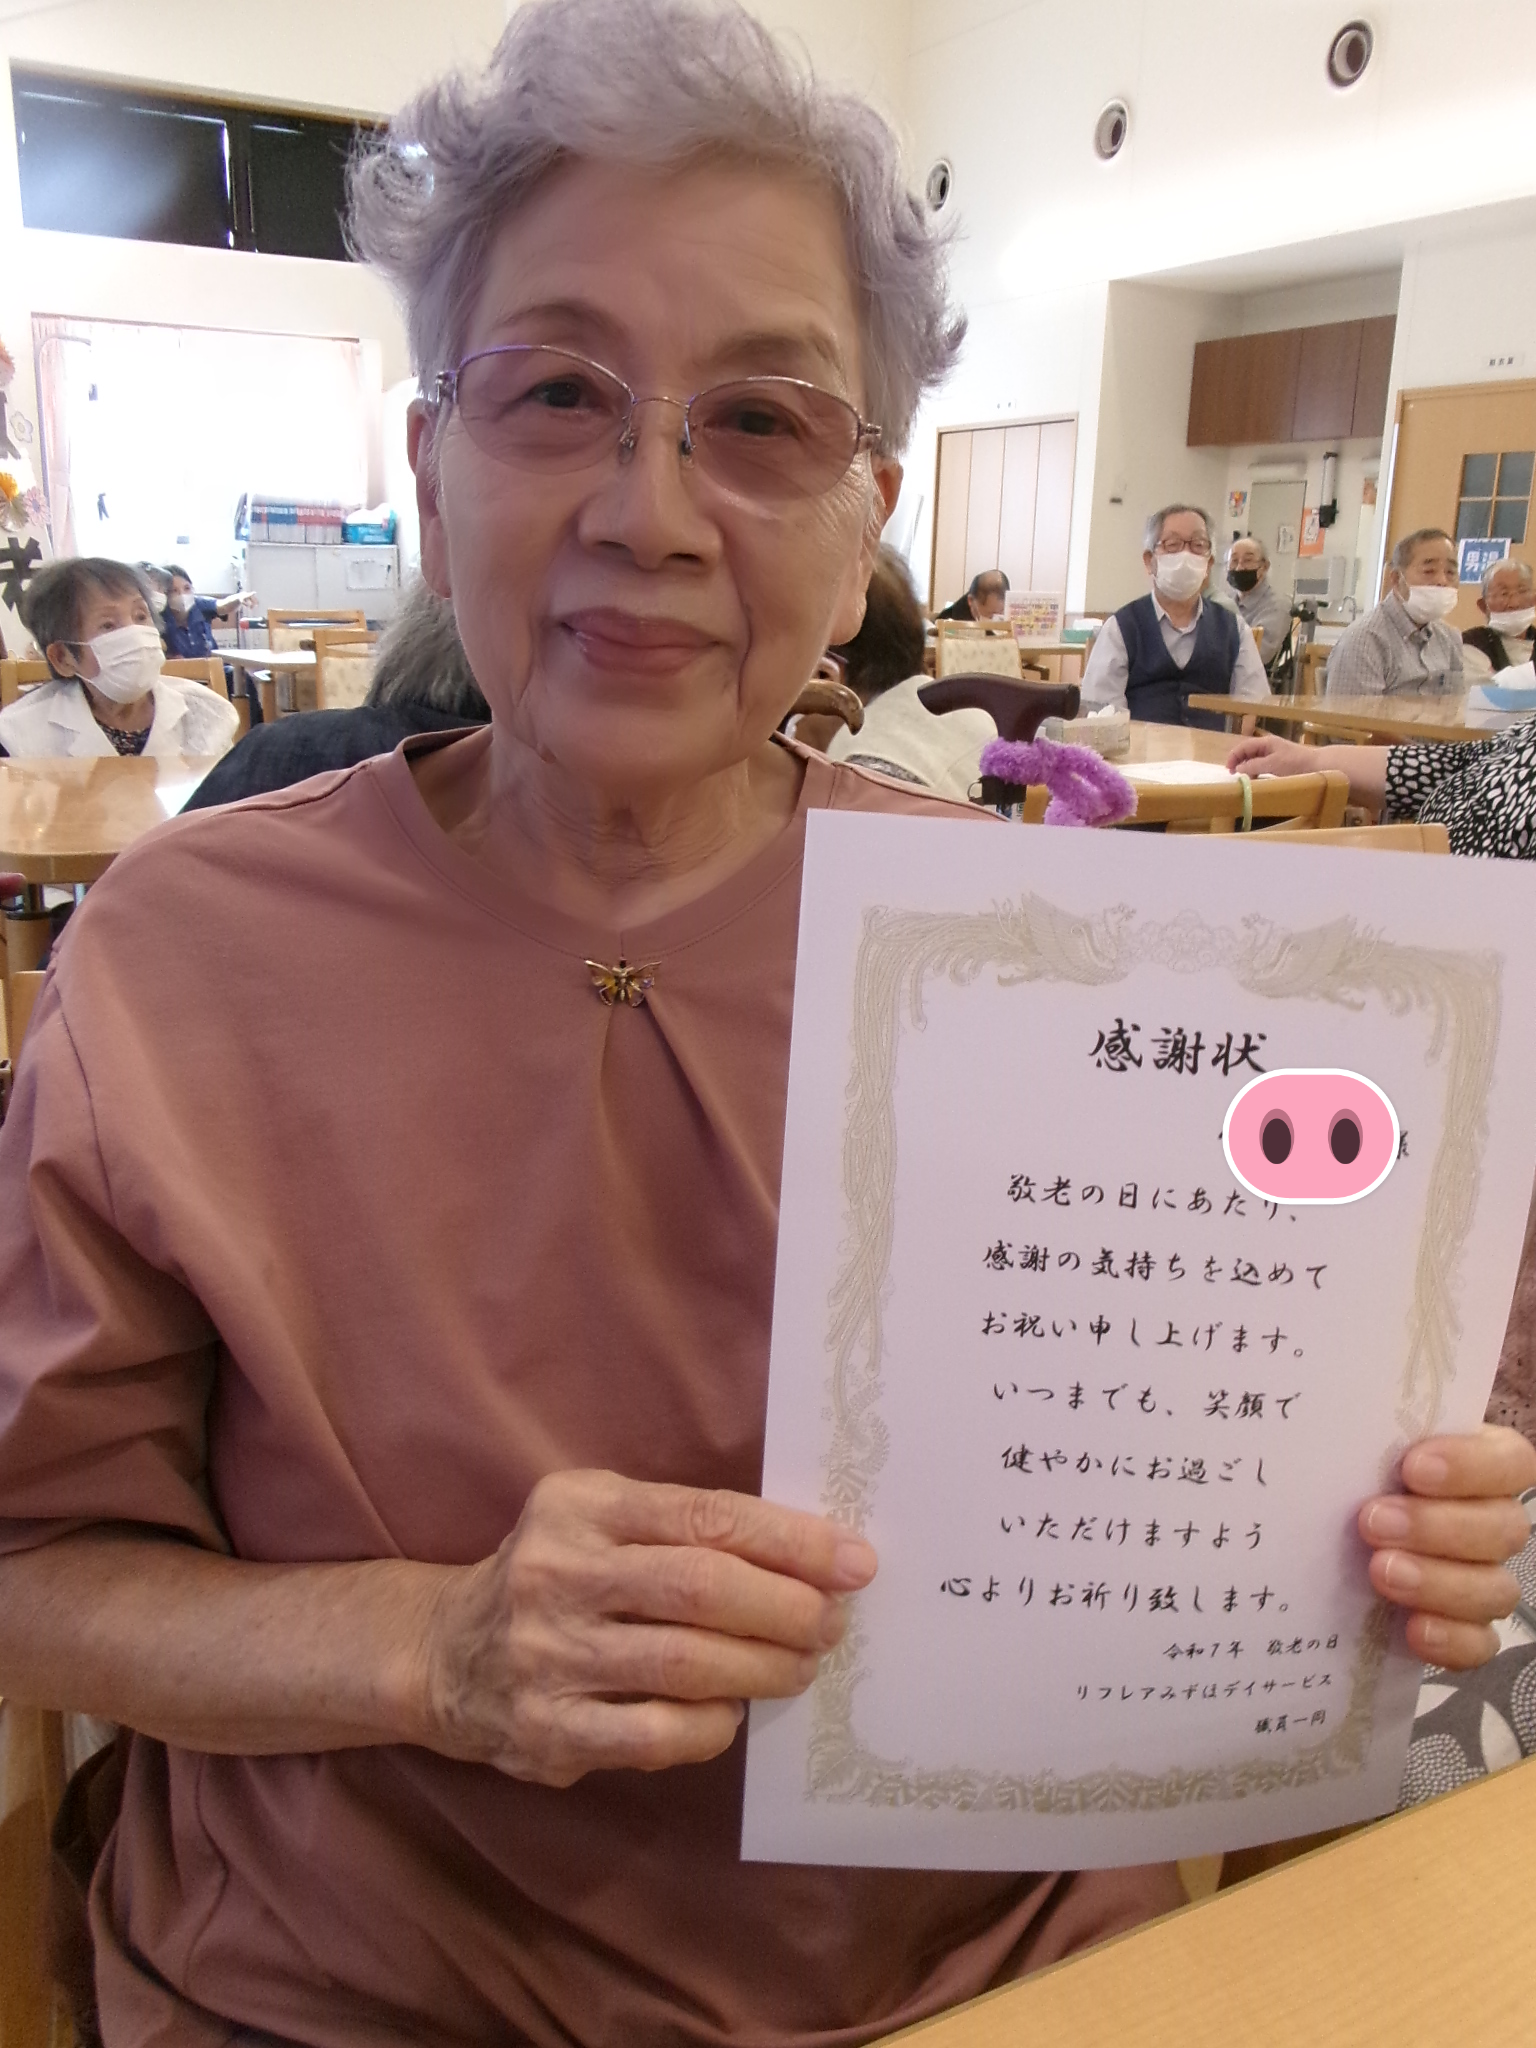 感謝状
様
敬老の日にあたり、
感謝の気持ちを込めて
お祝い申し上げます。
いつまでも、笑顔で
健やかにお過ごし
いただけますよう
心よりお祈り致します。
令和7年 敬老の日
リフレアみずほデイサービス
職員一同
男湯
老